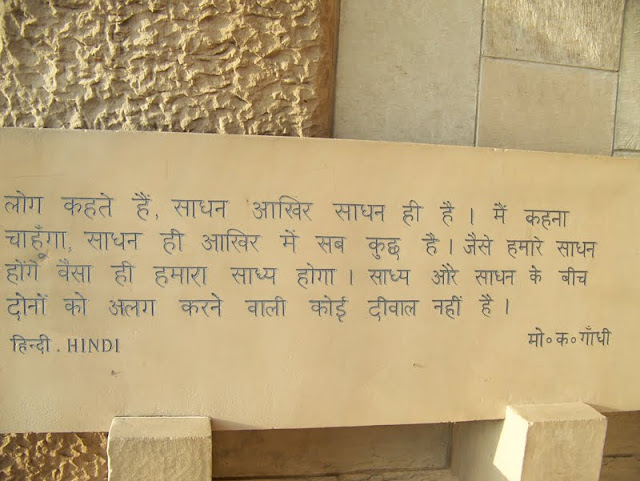 लोग कहते हैं, साधन आखिर साधन ही है । मैं कहना
चाहूँगा, साधन ही आखिर में सब कुछ है । जैसे हमारे साधन
होंगे वैसा ही हमारा साध्य होगा । साध्य और साधन के बीच
दोनों को अलग करने वाली कोई दीवाल नहीं है ।
हिन्दी . HINDI
मो॰ क॰ गाँधी